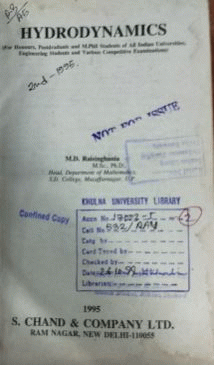 HYDRODYNAMICS
(For Honours, Postgraduate and M.Phil Students of All Indian Universities;
Engineering Students and Various Competitive Examinations)
2nd-1995.
NOT FOR ISSUE
M.D. Raisinghania
M.Sc., Ph.D.
Head, Department of Mathematics,
S.D. College, Muzaffarnagar, U.P.
KHULNA UNIVERSITY LIBRARY
Confined Copy
Accn No.
Call No. 532/RAY
Catg by
Card Typed by
Checked by
Date
Librarian
1995
S. CHAND & COMPANY LTD.
RAM NAGAR, NEW DELHI-110055